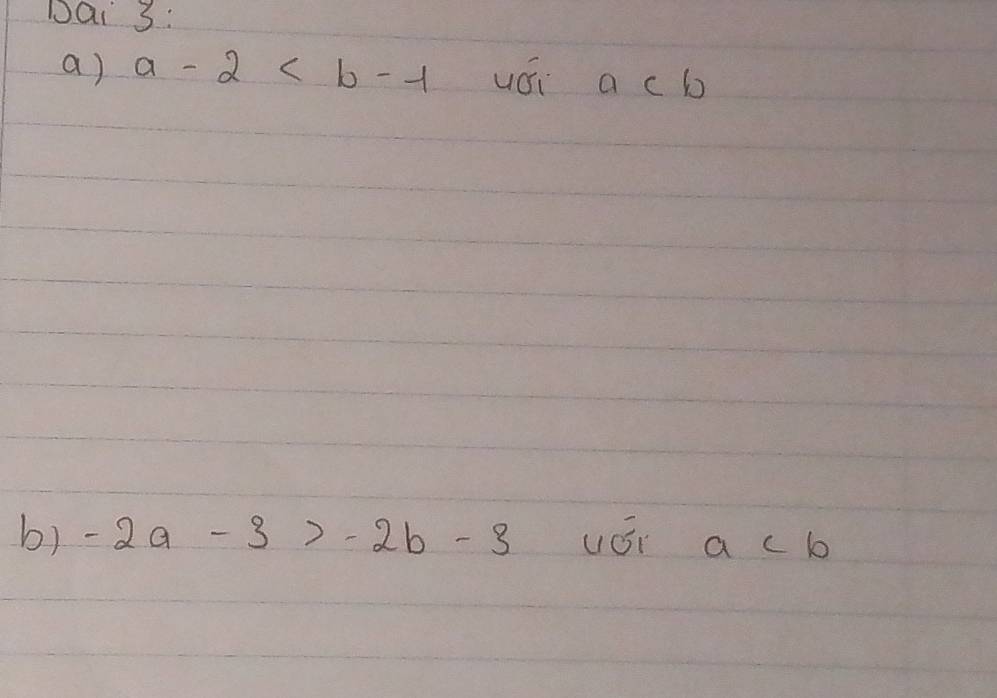 Bài 3:
a) a - 2 < b - 1 với a < b
b) -2a - 3 > -2b - 3 với a < b